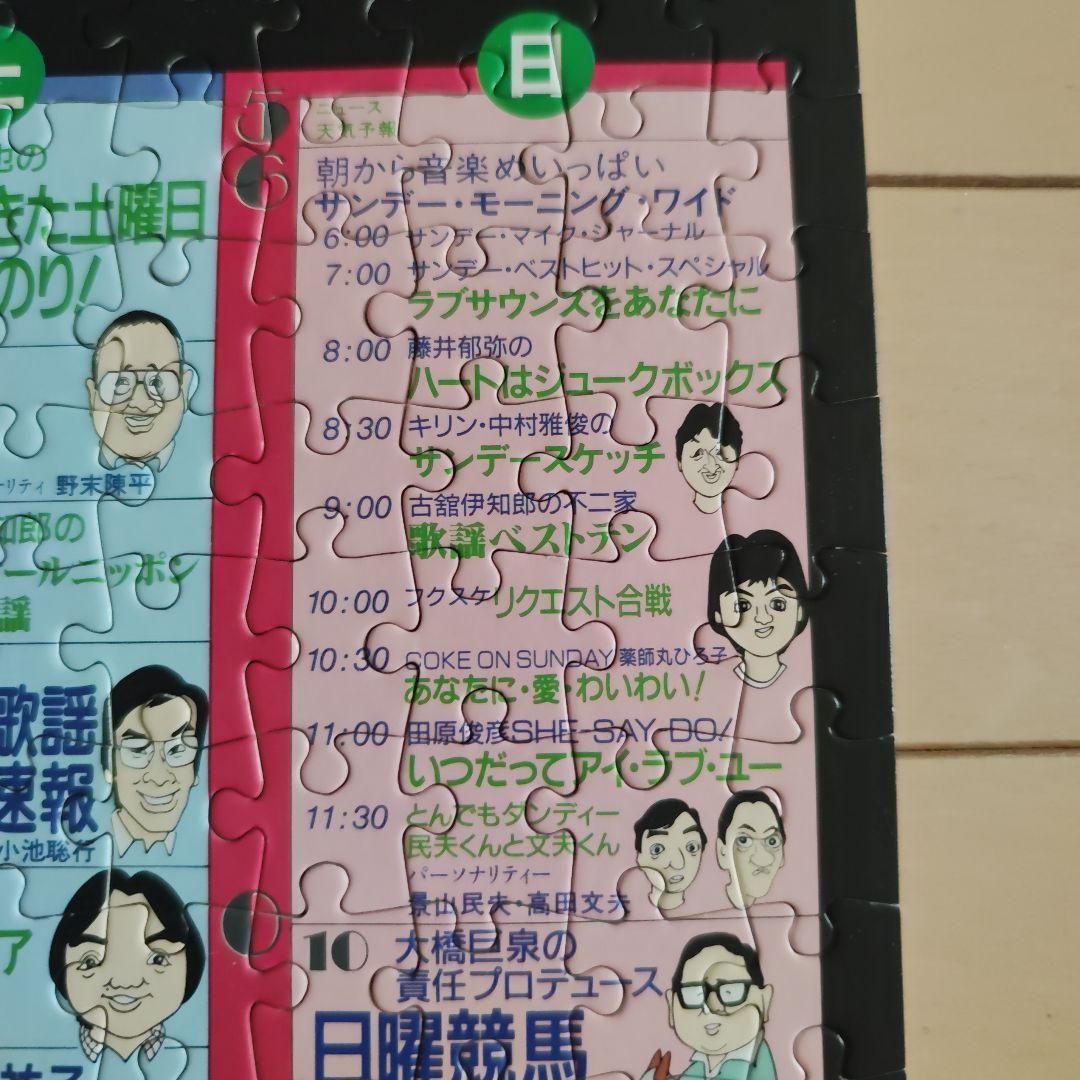 日
5
ニュース
天気予報
6
朝から音楽めいっぱい
サンデー・モーニング・ワイド
6:00 サンデー・マイク・ジャーナル
7:00 サンデー・ベストヒット・スペシャル
ラブサウンズをあなたに
8:00 藤井郁弥の
ハートはジュークボックス
8:30 キリン・中村雅俊の
サンデースケッチ
9:00 古舘伊知郎の不二家
歌謡ベストテン
10:00 フクスケリクエスト合戦
10:30 COKE ON SUNDAY 薬師丸ひろ子
あなたに・愛・わいわい!
11:00 田原俊彦SHE-SAY-DO!
いつだってアイ・ラブ・ユー
11:30 とんでもダンディー
民夫くんと文夫くん
パーソナリティー
景山民夫・高田文夫
10 大橋巨泉の
責任プロデュース
日曜競馬
也の
きた土曜日
のり!
リティ 野末陳平
知郎の
ールニッポン
謡
歌謡
速報
小池聡行
ア